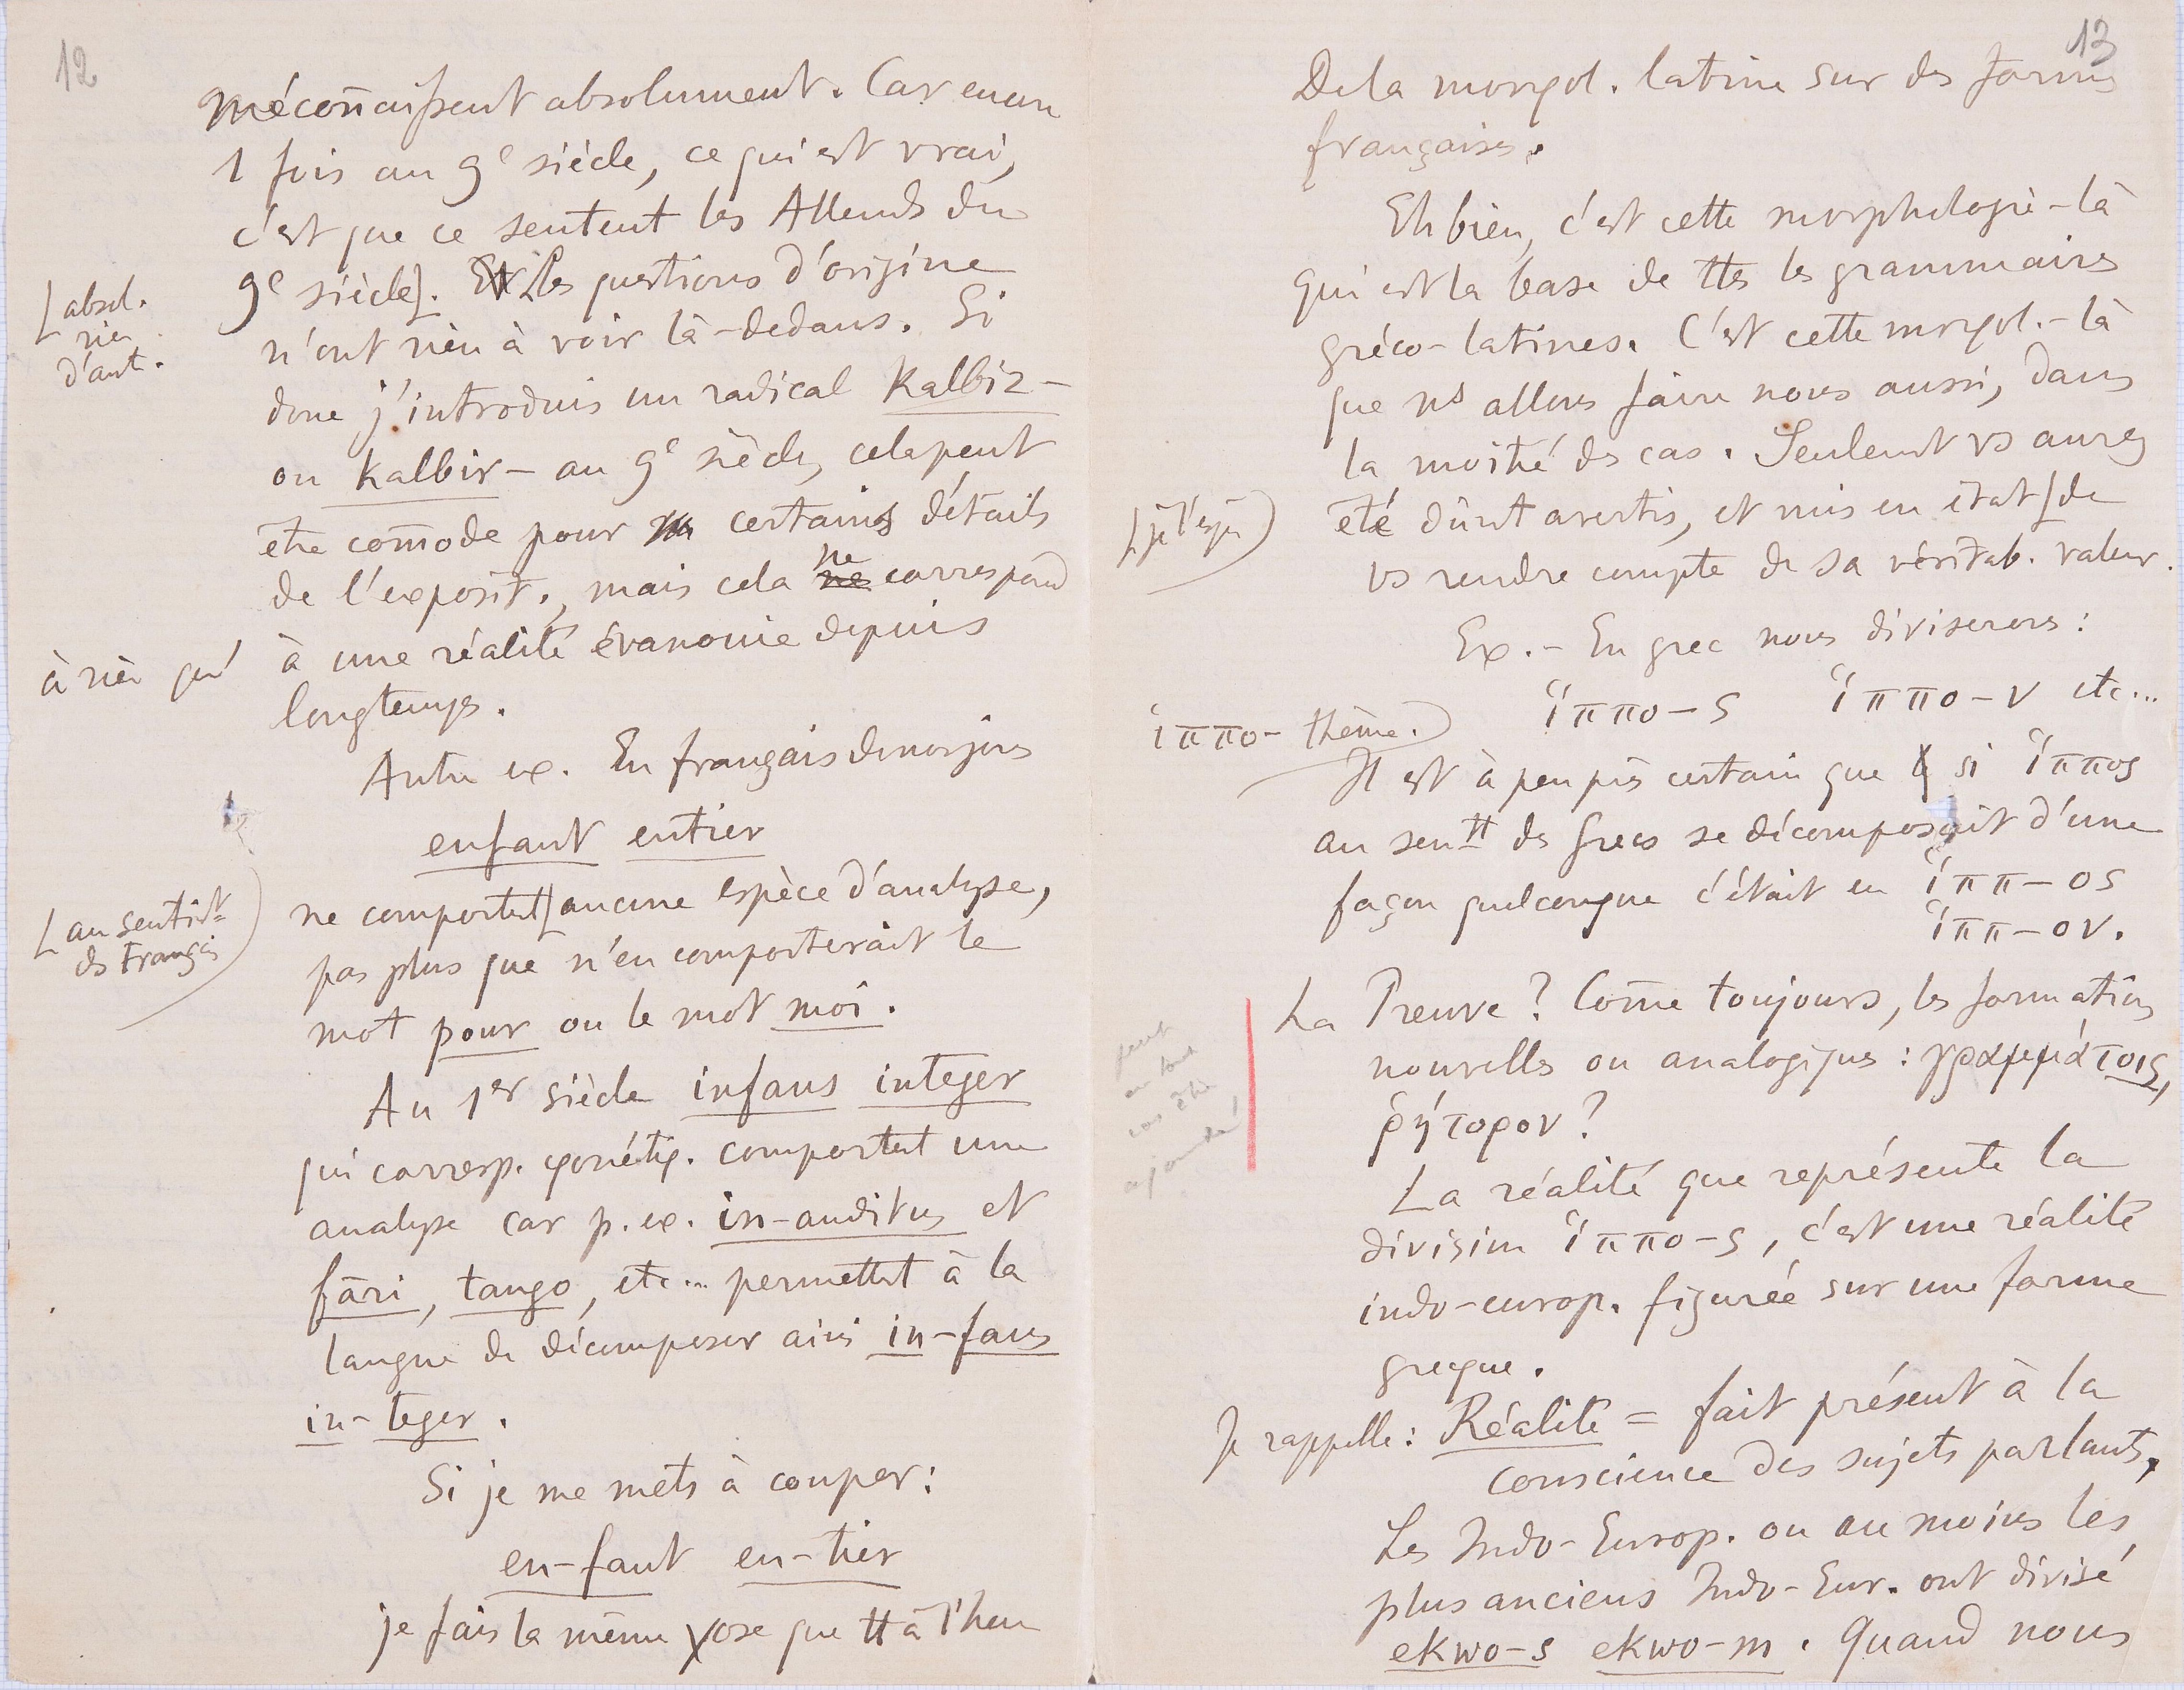 12
méconnaissent absolument. Car encore
1 fois au 9e siècle, ce qui est vrai,
c'est que ce sentent les Allemds du
9e siècle[. Les questions d'origine
[absol.
rien
d'aut.
n'ont rien à voir là-dedans. Si
donc j'introduis un radical kalbiz-
ou kalbir- au 9e siècle, cela peut
être com̄ode pour certains détails
de l'exposit., mais cela ne correspond
à rien qu'
à une réalité évanouie depuis
longtemps.
Autre ex. En français de nos jours
enfant entier
ne comportent[aucune espèce d'analyse,
[au sentimt
ds Français
pas plus que n'en comporterait le
mot pour ou le mot moi.
Au 1er siècle infans integer
qui corresp. φonétiq. comportent une
analyse car p. ex. in-auditus et
fāri, tango, etc... permettent à la
langue de décomposer ainsi in-fans
in-teger.
Si je me mets à couper:
en-fant en-tier
je fais la même χose que tt à l'heure
13
De la morφol. latine sur des formes
françaises.
Eh bien, c'est cette morphologie-là
qui est la base de ttes les grammaires
gréco-latines. C'est cette morφol.-là
que ns allons faire nous aussi, dans
la moitié des cas. Seulement vs aurez
été dûnt avertis, et mis en état[de
[je l'espère
vs rendre compte de sa véritab. valeur.
Ex. - En grec nous diviserons:
ἵππο-ς ἵππο-ν etc...
ἱππο- thème.
Il est à peu près certain que si ἵππος
au sentt des Grecs se décomposait d'une
façon quelconque c'était en ἵππ-ος
ἵππ-ον.
La Preuve? Com̄e toujours, les formations
nouvelles ou analogiques: γραμμάτοις,
ῥήτορον?
peut
en tout
cas être
ajouté!
La réalité que représente la
division ἵππο-ς, c'est une réalité
indo-europ. figurée sur une forme
grecque.
Je rappelle: Réalité = fait présent à la
conscience des sujets parlants.
Les Indo-Europ. ou au moins les
plus anciens Indo-Eur. ont divisé
ekwo-s ekwo-m. Quand nous